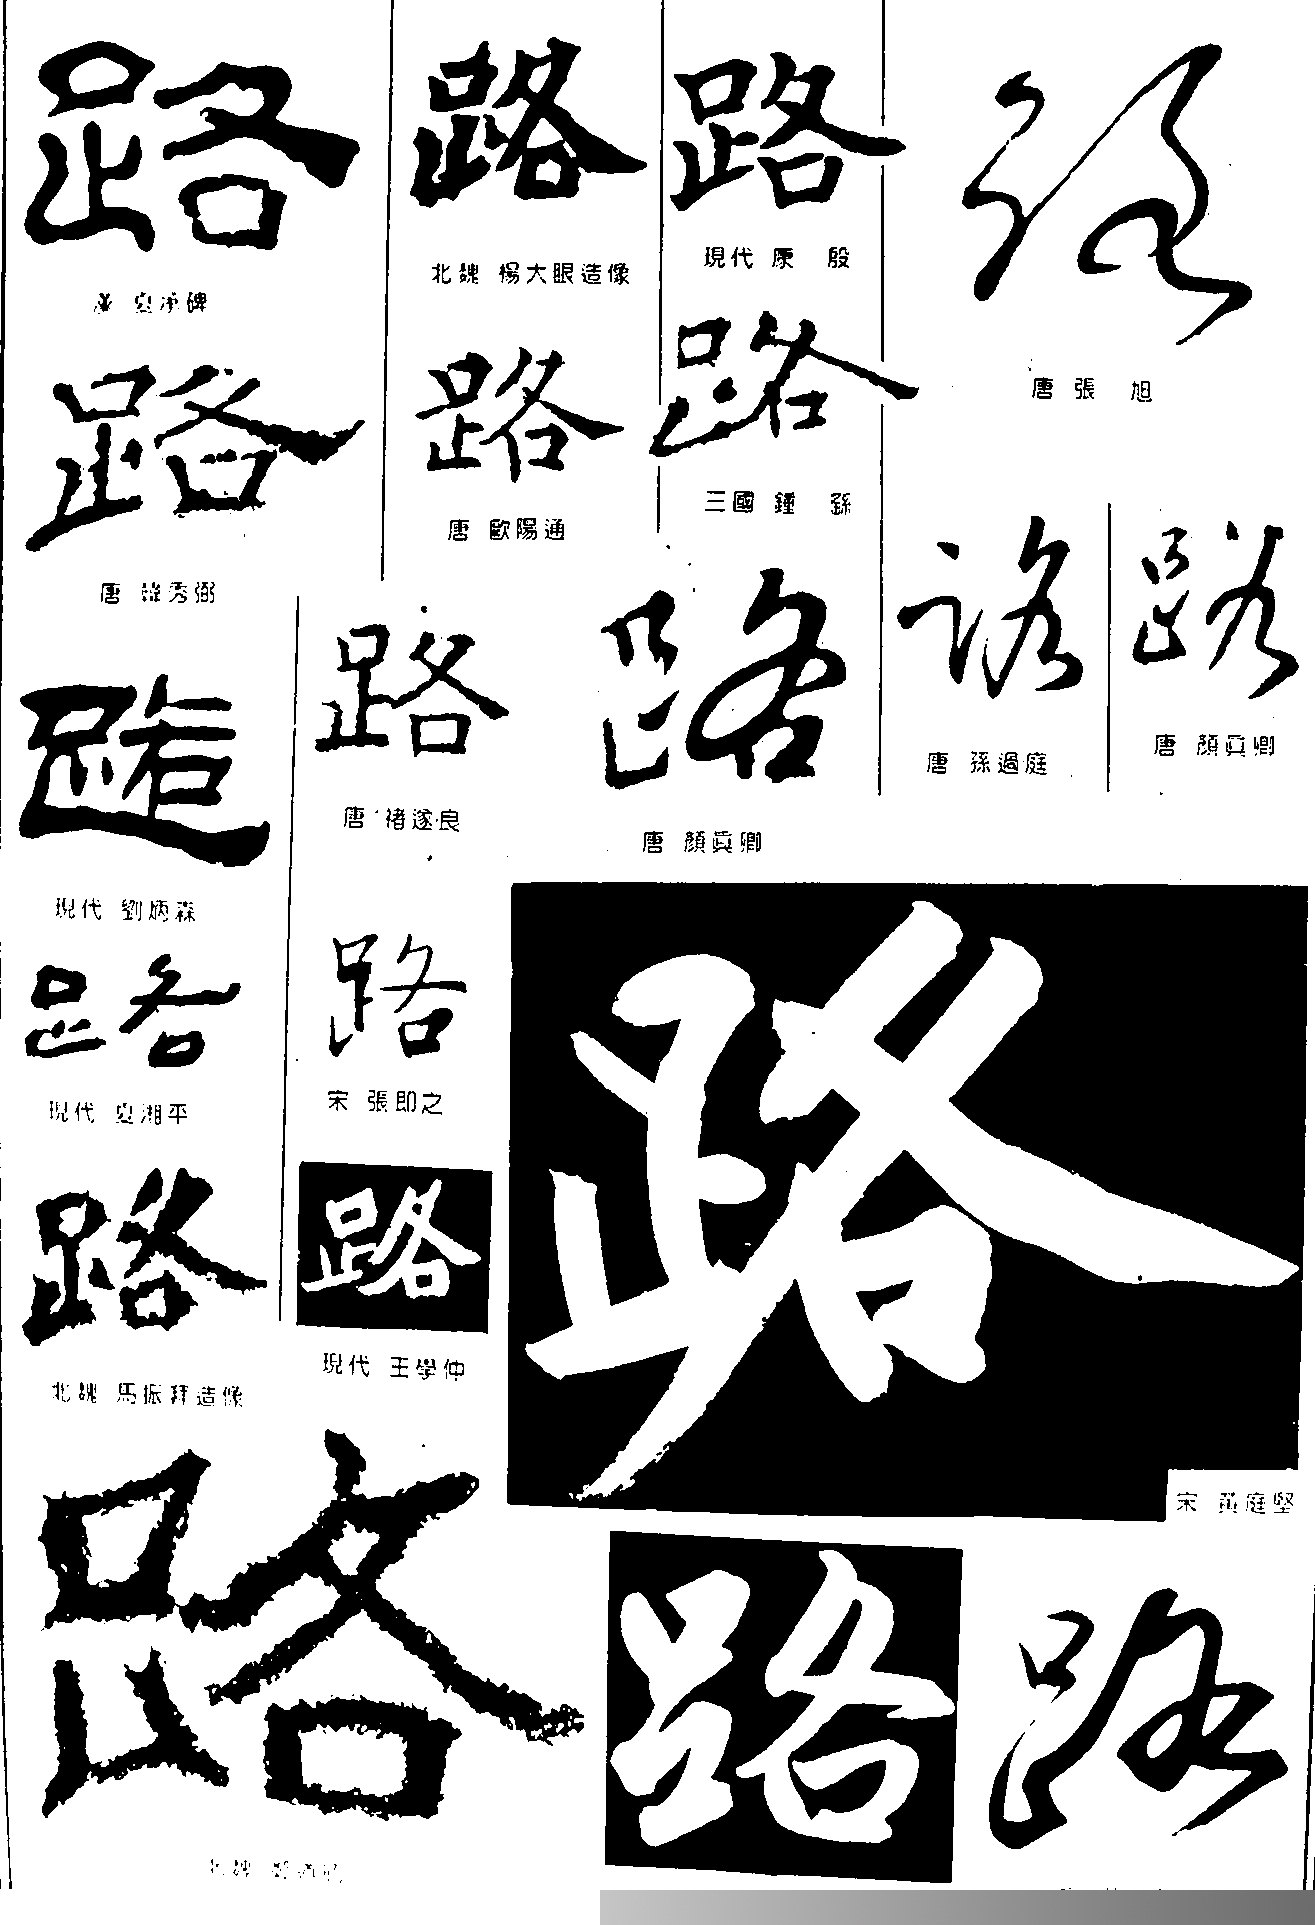 路
漢 夏承碑
路
唐 韓秀弼
路
現代 劉炳森
路
現代 夏湘平
路
北魏 馬振拜造像
路
北魏 鄭道昭
路
北魏 楊大眼造像
路
唐 歐陽通
路
唐 褚遂良
路
宋 張即之
路
現代 王學仲
路
現代 康 殷
路
三國 鍾 繇
路
唐 顏眞卿
路
唐 張 旭
路
唐 孫過庭
路
唐 顏眞卿
路
宋 黃庭堅
路
路